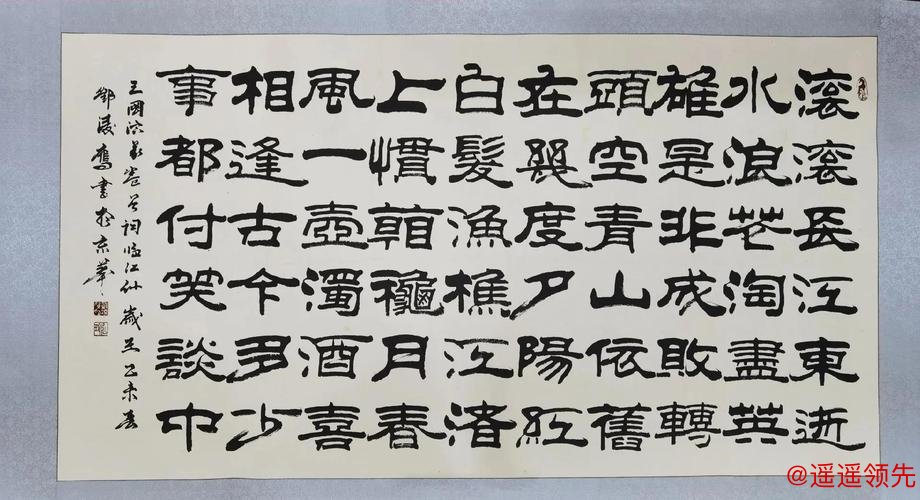 滚滚長江東逝
水浪花淘盡英
雄是非成敗轉
頭空青山依舊
在幾度夕陽紅
白髮漁樵江渚
上慣看龝月春
風一壺濁酒喜
相逢古今多少
事都付笑談中
三國演義卷首詞臨江仙 歲在乙未春
鄧凌鷹書於京華
@遥遥领先